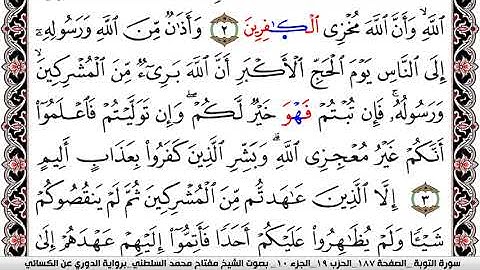 ٱللَّهِ وَأَنَّ ٱللَّهَ مُخۡزِي ٱلۡكَٰفِرِينَ ٢ وَأَذَٰنٞ مِّنَ ٱللَّهِ وَرَسُولِهِۦٓ
إِلَى ٱلنَّاسِ يَوۡمَ ٱلۡحَجِّ ٱلۡأَكۡبَرِ أَنَّ ٱللَّهَ بَرِيٓءٞ مِّنَ ٱلۡمُشۡرِكِينَ
وَرَسُولُهُۥۚ فَإِن تُبۡتُمۡ فَهۡوَ خَيۡرٞ لَّكُمۡۖ وَإِن تَوَلَّيۡتُمۡ فَٱعۡلَمُوٓاْ
أَنَّكُمۡ غَيۡرُ مُعۡجِزِي ٱللَّهِۗ وَبَشِّرِ ٱلَّذِينَ كَفَرُواْ بِعَذَابٍ أَلِيمٍ
٣ إِلَّا ٱلَّذِينَ عَٰهَدتُّم مِّنَ ٱلۡمُشۡرِكِينَ ثُمَّ لَمۡ يَنقُصُوكُمۡ
شَيۡـٔٗا وَلَمۡ يُظَٰهِرُواْ عَلَيۡكُمۡ أَحَدٗا فَأَتِمُّوٓاْ إِلَيۡهِمۡ عَهۡدَهُمۡ إِلَىٰ
سورة التوبة _الصفحة ١٨٧_ الحزب ١٩_ الجزء ١٠_ بصوت الشيخ مفتاح محمد السلطني _برواية الدوري عن الكسائي